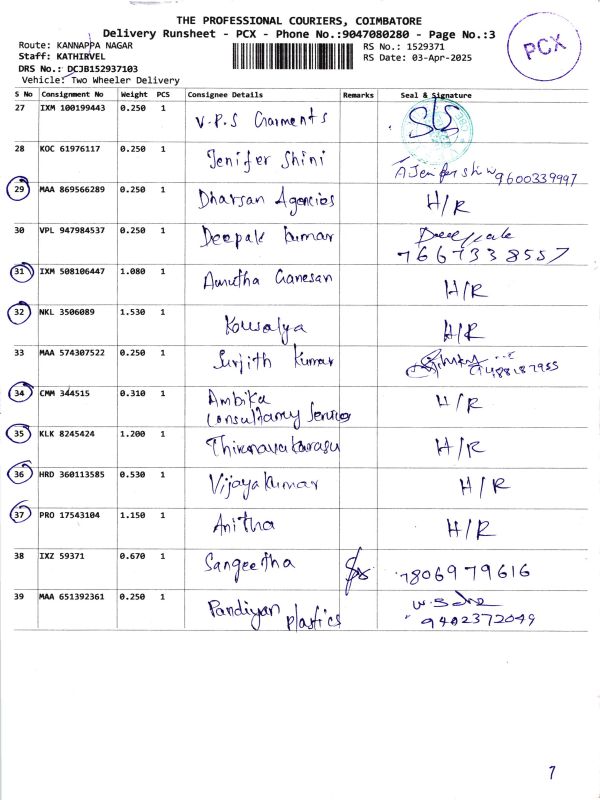 THE PROFESSIONAL COURIERS, COIMBATORE
Delivery Runsheet - PCX - Phone No.:9047080280 - Page No.:3
Route: KANNAPPA NAGAR RS No.: 1529371
Staff: KATHIRVEL RS Date: 03-Apr-2025
DRS No.: DCJB152937103
Vehicle: Two Wheeler Delivery
PCX
S No Consignment No Weight PCS Consignee Details Remarks Seal & Signature
27 IXM 100199443 0.250 1 V.P.S Garments
28 KOC 61976117 0.250 1 Jenifer Shini A Jenifer Shini 9600339997
29 MAA 869566289 0.250 1 Dharsan Agencies H/R
30 VPL 947984537 0.250 1 Deepak kumar Deepak
7667338557
31 IXM 508106447 1.080 1 Amutha Ganesan H/R
32 NKL 3506089 1.530 1 Kowsalya H/R
33 MAA 574307522 0.250 1 Surjith Kumar
34 CMM 344515 0.310 1 Ambika H/R
Consultancy Service
35 KLK 8245424 1.200 1 Thirunavukarasu H/R
36 HRD 360113585 0.530 1 Vijayakumar H/R
37 PRO 17543104 1.150 1 Anitha H/R
38 IXZ 59371 0.670 1 Sangeetha 7806979616
39 MAA 651392361 0.250 1 Pandiyan plastics
9402372049
7